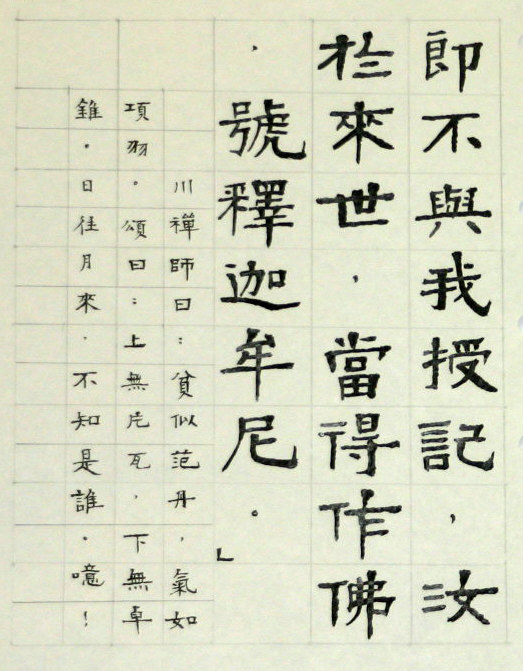 即不與我授記，汝
於來世，當得作佛
，號釋迦牟尼。」
川禪師曰：貧似范丹，氣如
項羽。頌曰：上無片瓦，下無卓
錐。日往月來，不知是誰。噫！